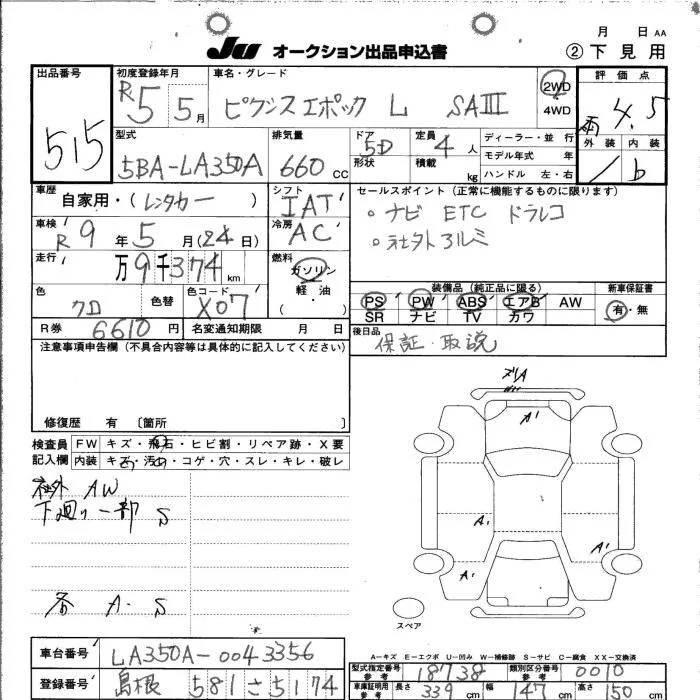 月 日 AA
JU オークション出品申込書 ②下見用
出品番号 初度登録年月 車名・グレード 評価点
515 R5 5月 ピクシスエポック L SAⅢ 2WD 4WD 4.5
型式 排気量 ドア 定員 ディーラー・並行 外装 内装
5BA-LA350A 660 CC 5D 4人 モデル年式 年 1 b
形状 積載 kg ハンドル 左・右
車歴 シフト セールスポイント(正常に機能するものに限ります)
自家用・(レンタカー) IAT 。ナビ ETC ドラレコ
車検 R9年5月(24日) 冷房 AC 。社外アルミ
走行 万9千374km 燃料 ガソリン 軽油・
装備品(純正品に限る) 新車保証書
色 クロ 色替 色コード X07 ( )
PS PW ABS エアB AW 有・無
SR ナビ TV カワ
R券 6610円 名変通知期限 月 日 後日品
保証・取説
注意事項申告欄(不具合内容等は具体的に記入してください)
修復歴 有 〔箇所 〕
検査員 FW キズ・飛石・ヒビ割・リペア跡・X要
記入欄 内装 キズ・汚れ・コゲ・穴・スレ・キレ・破レ
社外 AW
下廻り一部 S
各 A・S
ズリA
A1
A1
A1
A1
スペア
A-キズ E-エクボ U-凹み W-補修跡 S-サビ C-腐食 XX-交換済
車台番号 LA350A-0043356
型式指定番号 参考 18738 類別区分番号 参考 0010
登録番号 島根 581 さ 5174
車庫証明用 参考 長さ 339cm 幅 147cm 高さ 150cm